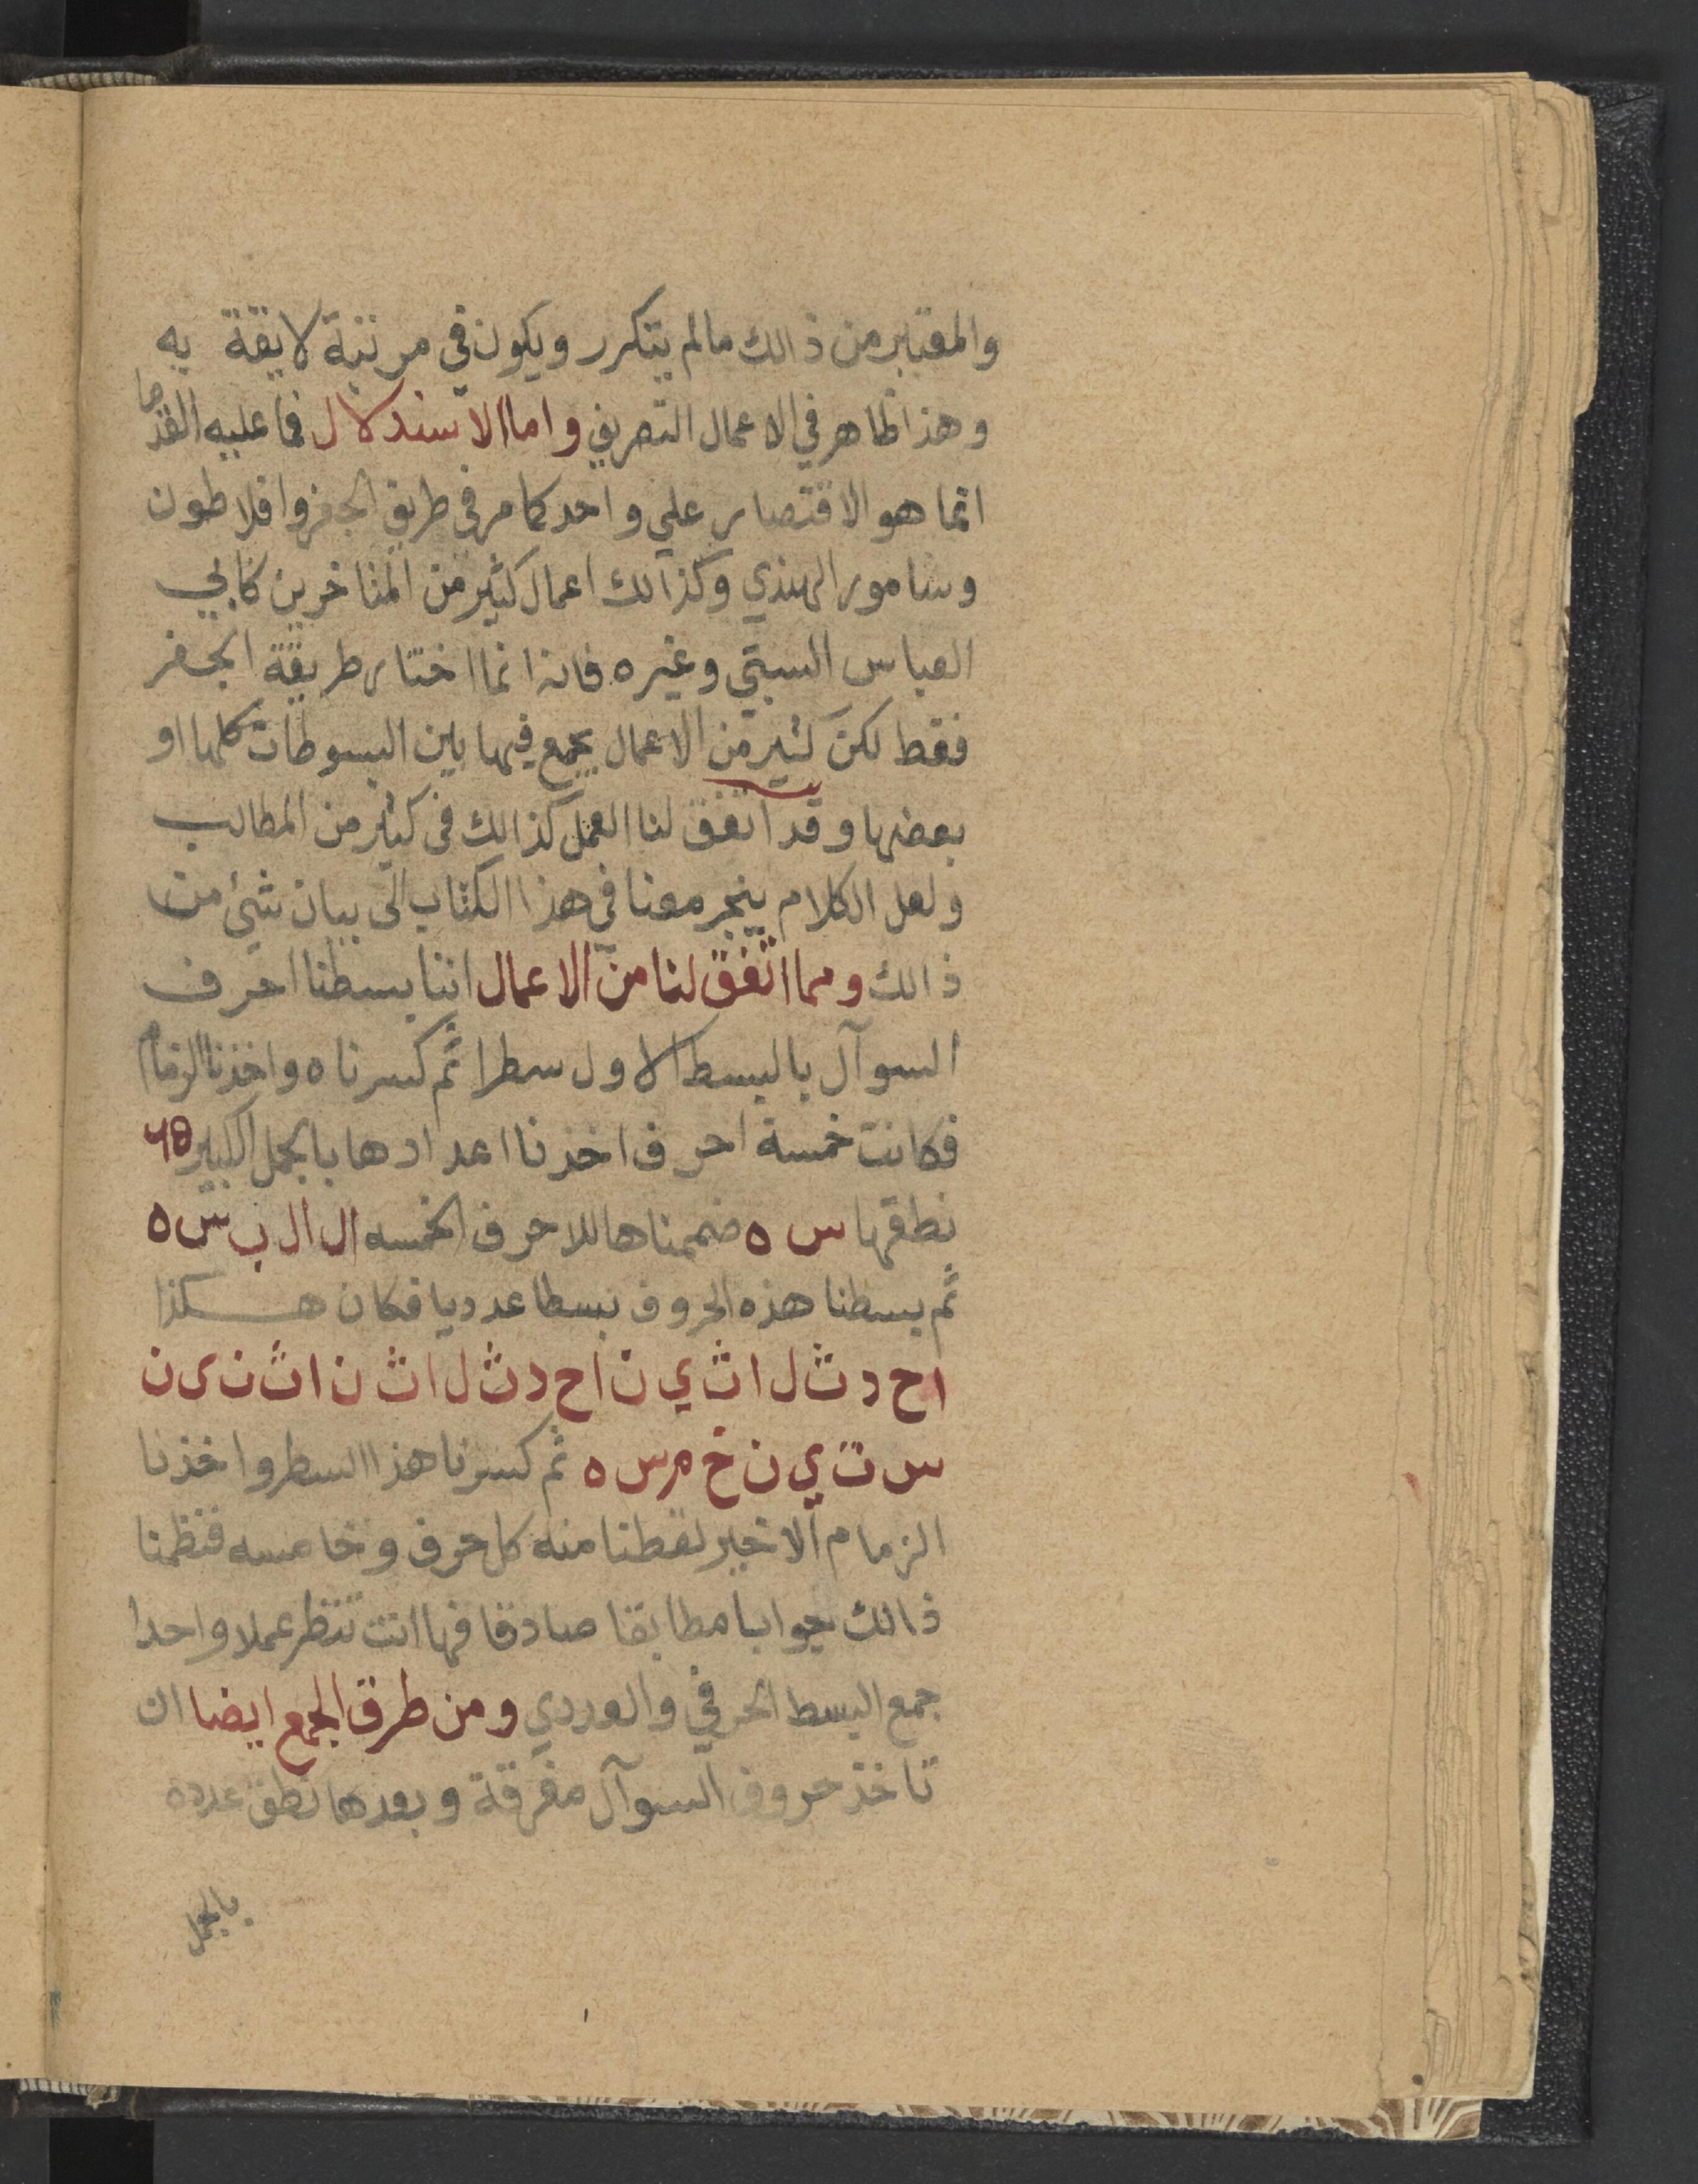 والمعتبر من ذالك مالم يتكرر ويكون في مرتبة لايقة به
وهذا ظاهر في الاعمال التصريف واما الاستدلال فما عليه القدما
انما هو الاقتصار علي واحد كما مر في طريق الجفر وافلاطون
وسامور الهندي وكذالك اعمال كثير من المتاخرين كابي
العباس السبتي وغيره فانه انما اختار طريقة الجفر
فقط لكن كثير من الاعمال يجمع فيها بين البسوطات كلها او
بعضها وقد اتفق لنا العمل كذالك في كثير من المطالب
ولعل الكلام ينجر معنا في هذا الكتاب الى بيان شئ من
ذالك ومما اتفق لنا من الاعمال اننا بسطنا احرف
السوآل بالبسط الاول سطرا ثم كسرناه واخذنا الزمام
فكانت خمسة احرف اخذنا اعدادها بالجمل الكبير ٦٥
نطقها س ه ضممناها للاحرف الخمسه ال ال ب س ه
ثم بسطنا هذه الحروف بسطا عدديا فكان هكذا
ا ح د ث ل ا ث ي ن ا ح د ث ل ا ث ن ا ث ن ى ن
س ت ي ن خ م س ه ثم كسرنا هذا السطر واخذنا
الزمام الاخير لقطنا منه كل حرف وخامسه فنظمنا
ذالك جوابا مطابقا صادقا فها انت تنظر عملا واحدا
جمع البسط الحرفي والعددي ومن طرق الجمع ايضا ان
تاخذ حروف السوآل مفرقة وبعدها نطق عدده
بالجمل